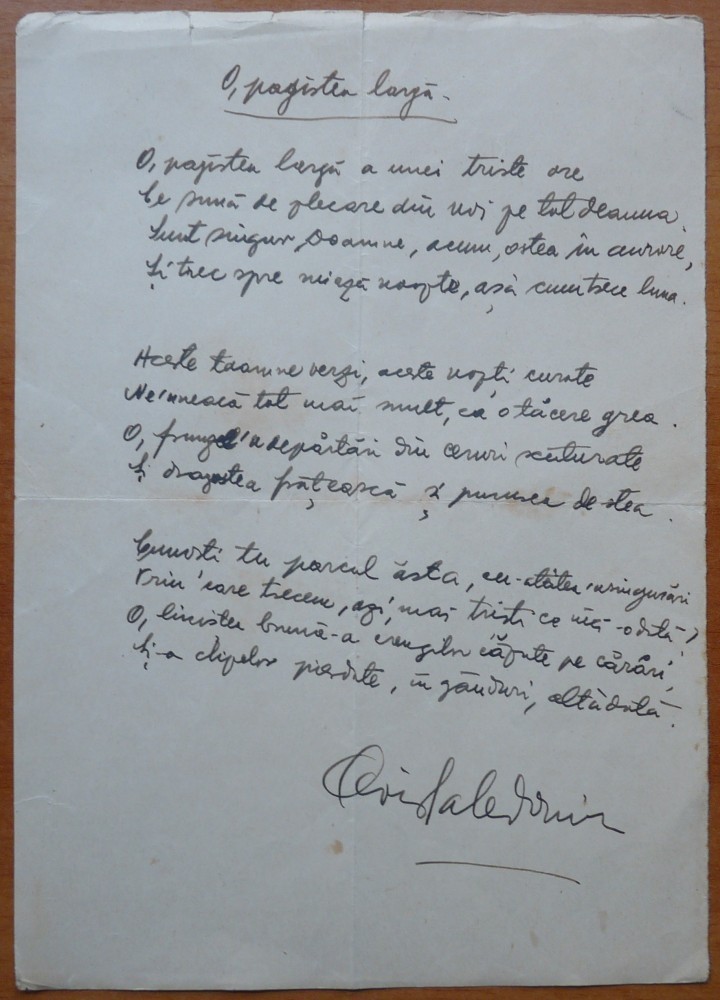 O, pagistea largă.
O, pajistea largă a unei triste ore
Ce sună de plecare din noi pe tot deauna.
Sunt singur, Doamne, acum, ostea în aurore,
Și trec spre miază noapte, așà cum trece luna.
Aceste toamne vergi, aceste nopți curate
Ne'nneacă tot mai mult, ca o tăcere grea.
O, frunzel'n depărtări din ceruri scuturate
Și dragostea frățească și pururea de stea.
Cunoști tu parcul ăsta, cu-atâtea 'nsingurări
Prin care trecem, azi, mai triști ca nici-odată?
O, liniștea bună-a crengilor căzute pe cărări,
Și-a clipelor pierdute, în gânduri, altădată.
Ovid Caledoniu